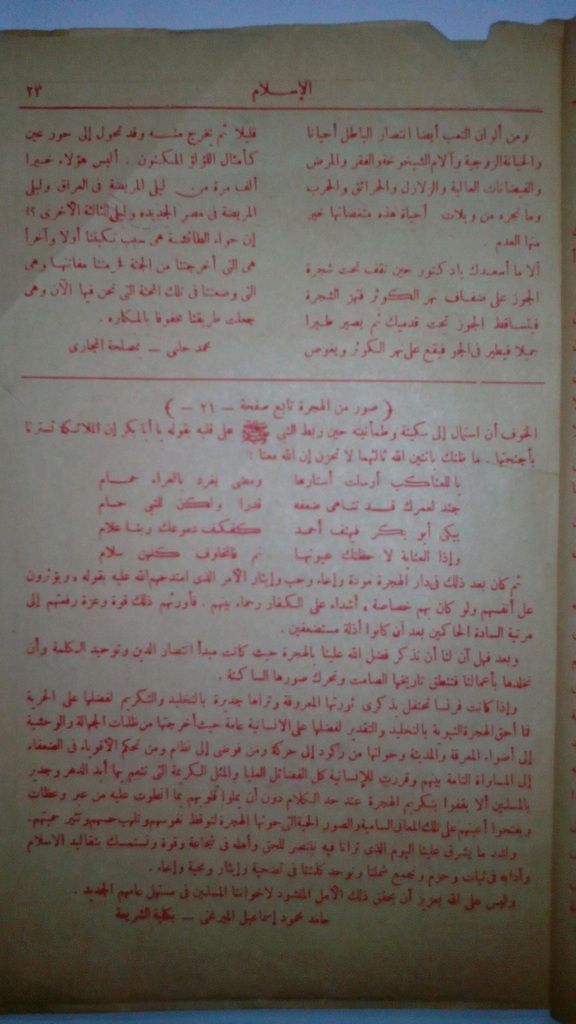 ٢٣
الإسلام
ومن ألوان التعب أيضا انتصار الباطل أحيانا
والخيانة الزوجية وآلام الشيخوخة والفقر والمرض
والفيضانات العالية والزلازل والحرائق والحرب
وما تجره من ويلات أحياة هذه منغصاتها خير
منها العدم .
ألا ما أسعدك يا دكتور حين تقف تحت شجرة
الجوز على ضفاف نهر الكوثر فتهز الشجرة
فيتساقط الجوز تحت قدميك ثم يصير طيرا
جميلا فيطير فى الجو فيقع على نهر الكوثر ويغوص
قليلا ثم يخرج منه وقد تحول إلى حور عين
كأمثال اللؤلؤ المكنون . أليس هؤلاء خيرا
ألف مرة من ليلى المريضة فى العراق وليلى
المريضة فى مصر الجديدة وليلى الثالثة الأخرى ؟!
إن حواء الطائشة هى سبب نكبتنا أولا وآخرا
هى التى أخرجتنا من الجنة فحرمتنا مفاتنها وهى
التى وضعتنا فى تلك المحنة التى نحن فيها الآن وهى
جعلت طريقنا محفوفا بالمكاره .
محمد حلمى — بمصلحة المجارى
( صور من الهجرة تابع صفحة — ٢١ — )
الخوف أن استمال إلى سكينة وطمأنينة حين ربط النبى ﷺ على قلبه بقوله يا أبا بكر إن الملائكة تسترنا
بأجنحتها . ما ظنك باثنين الله ثالثهما لا تحزن إن الله معنا :
يا للعناكب أرسلت أستارها ومضى يغرد بالعراء حمام
جند لعمرك قد تناهى ضعفه قدرا ولكن للنبى حسام
يبكى أبو بكر فيهتف أحمد كفكف دموعك ربنا علام
وإذا العناية لاحظتك عيونها نم فالمخاوف كلهن سلام
ثم كان بعد ذلك فى دار الهجرة مودة وإخاء وحب وإيثار الأمر الذى امتدحهم الله عليه بقوله « ويؤثرون
على أنفسهم ولو كان بهم خصاصة » أشداء على الكفار رحماء بينهم . فأورثهم ذلك قوة وعزة رفعتهم إلى
مرتبة السادة الحاكمين بعد أن كانوا أذلة مستضعفين .
وبعد فهل آن لنا أن نذكر فضل الله علينا بالهجرة حيث كانت مبدأ انتصار الدين وتوحيد الكلمة وأن
نخلدها بأعمالنا فتنطق تاريخها الصامت وتحرك صورها الساكنة .
وإذا كانت فرنسا تحتفل بذكرى ثورتها المعروفة وتراها جديرة بالتخليد والتكريم لفضلها على الحرية
فما أحق الهجرة النبوية بالتخليد والتقدير لفضلها على الانسانية عامة حيث أخرجتها من ظلمات الجهالة والوحشية
إلى أضواء المعرفة والمدنية وحولتها من ركود إلى حركة ومن فوضى إلى نظام ومن تحكم الأقوياء فى الضعفاء
إلى المساواة التامة بينهم وقررت للإنسانية كل الفضائل العليا والمثل الكريمة التى تنعم بها أبد الدهر وجدير
بالمسلمين ألا يقفوا بتكريم الهجرة عند حد الكلام دون أن يملوا قلوبهم بما انطوت عليه من عبر وعظات
ويفتحوا أعينهم على تلك المعانى السامية والصور الحية التى حوتها الهجرة لتوقظ نفوسهم وتلهب حسهم وتثير حميتهم .
ولشد ما يشرق علينا اليوم الذى ترانا فيه ننتصر للحق وأهله فى شجاعة وقوة ونستمسك بتقاليد الاسلام
وآدابه فى ثبات وحزم ونجمع شملنا ونوحد كلمتنا فى تضحية وإيثار ومحبة وإخاء .
وليس على الله بعزيز أن يحقق ذلك الأمل المنشود لاخواننا المسلمين فى مستهل عامهم الجديد .
حامد محمود إسماعيل الميرغنى — بكلية الشريعة